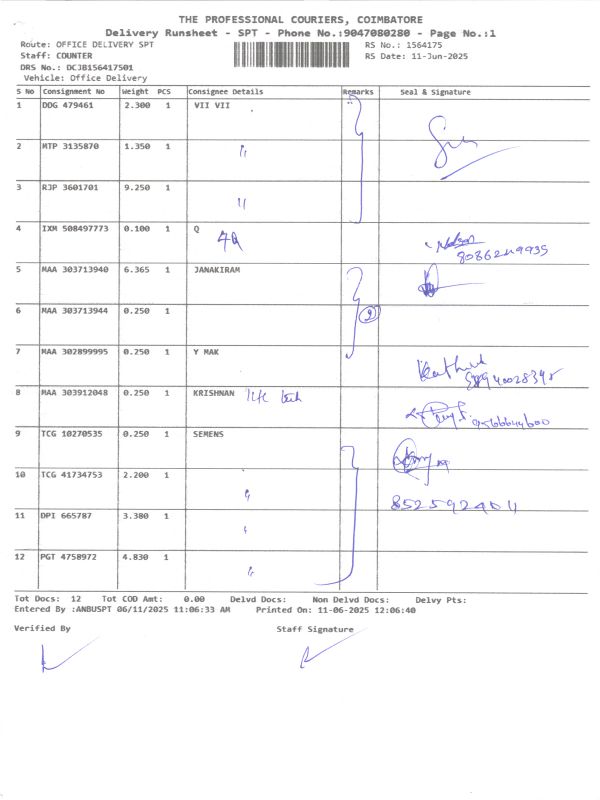 THE PROFESSIONAL COURIERS, COIMBATORE
Delivery Runsheet - SPT - Phone No.:9047080280 - Page No.:1
Route: OFFICE DELIVERY SPT RS No.: 1564175
Staff: COUNTER RS Date: 11-Jun-2025
DRS No.: DCJB156417501
Vehicle: Office Delivery
S No Consignment No Weight PCS Consignee Details Remarks Seal & Signature
1 DDG 479461 2.300 1 VII VII
2 MTP 3135870 1.350 1 "
3 RJP 3601701 9.250 1 "
4 IXM 508497773 0.100 1 Q
5 MAA 303713940 6.365 1 JANAKIRAM
6 MAA 303713944 0.250 1
7 MAA 302899995 0.250 1 Y MAK
8 MAA 303912048 0.250 1 KRISHNAN
9 TCG 10270535 0.250 1 SEMENS
10 TCG 41734753 2.200 1 "
8525924011
11 DPI 665787 3.380 1 "
12 PGT 4758972 4.830 1 "
Tot Docs: 12 Tot COD Amt: 0.00 Delvd Docs: Non Delvd Docs: Delvy Pts:
Entered By :ANBUSPT 06/11/2025 11:06:33 AM Printed On: 11-06-2025 12:06:40
Verified By Staff Signature